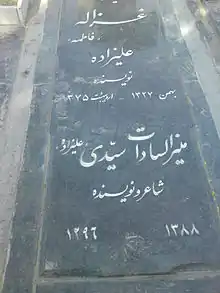 غزاله
(فاطمه)
علیزاده
نویسنده
بهمن ۱۳۲۷ - اردیبهشت ۱۳۷۵
منیرالسادات سیّدی (علیزاده)
شاعر و نویسنده
۱۲۹۶ ۱۳۸۸